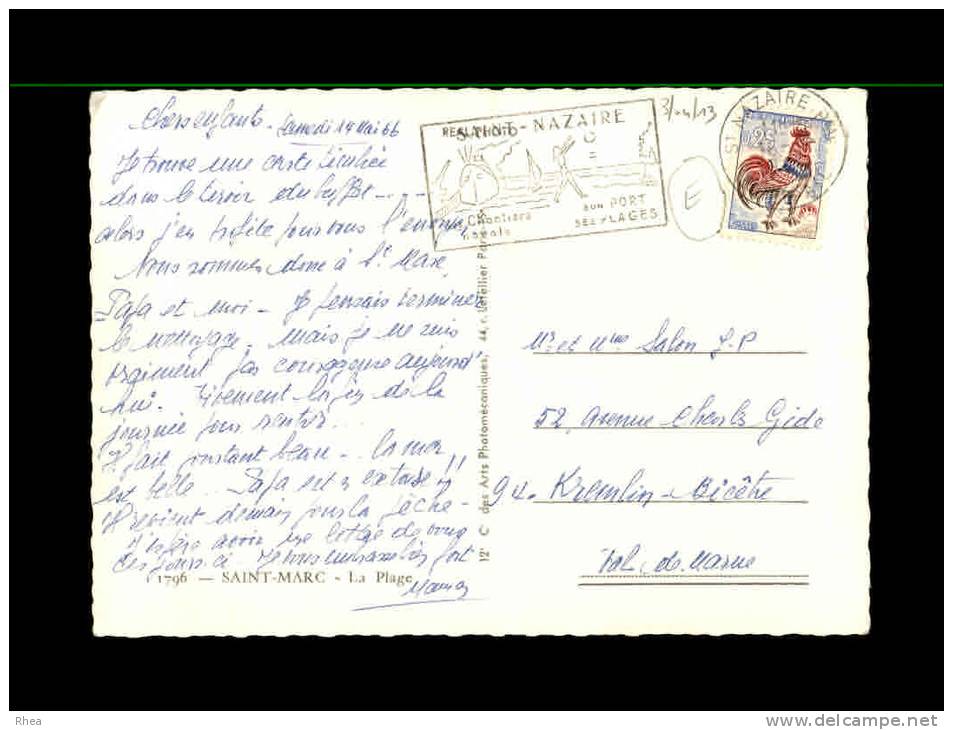 Chers enfants - Samedi 14 Mai 66
Je trouve une carte timbrée
dans le tiroir du buffet - - -
alors j'en profite pour vous l'envoyer
Nous sommes donc à St Marc,
Papa et moi - Je pensais terminer
le nettoyage - mais je ne suis
vraiment pas courageuse aujourd'
hui. Vivement la fin de la
journée pour sentir ...
Il fait pourtant beau - la mer
est belle .. Papa est en extase !!
Il revient demain pour la pêche -
J'espère avoir une lettre de vous
ces jours-ci Je vous embrasse bien fort
Maman
1796 — SAINT-MARC - La Plage
12e C des Arts Photomécaniques, 44, r. Letellier Paris
SAINT-NAZAIRE
Chantiers
navals
SON PORT
SES PLAGES
3/04/13
E
ST NAZAIRE
0,25
Mr et Mme Salon J-P
52, Avenue Charles Gide
94 - Kremlin-Bicêtre
Val de Marne
Rhea
www.delcampe.net